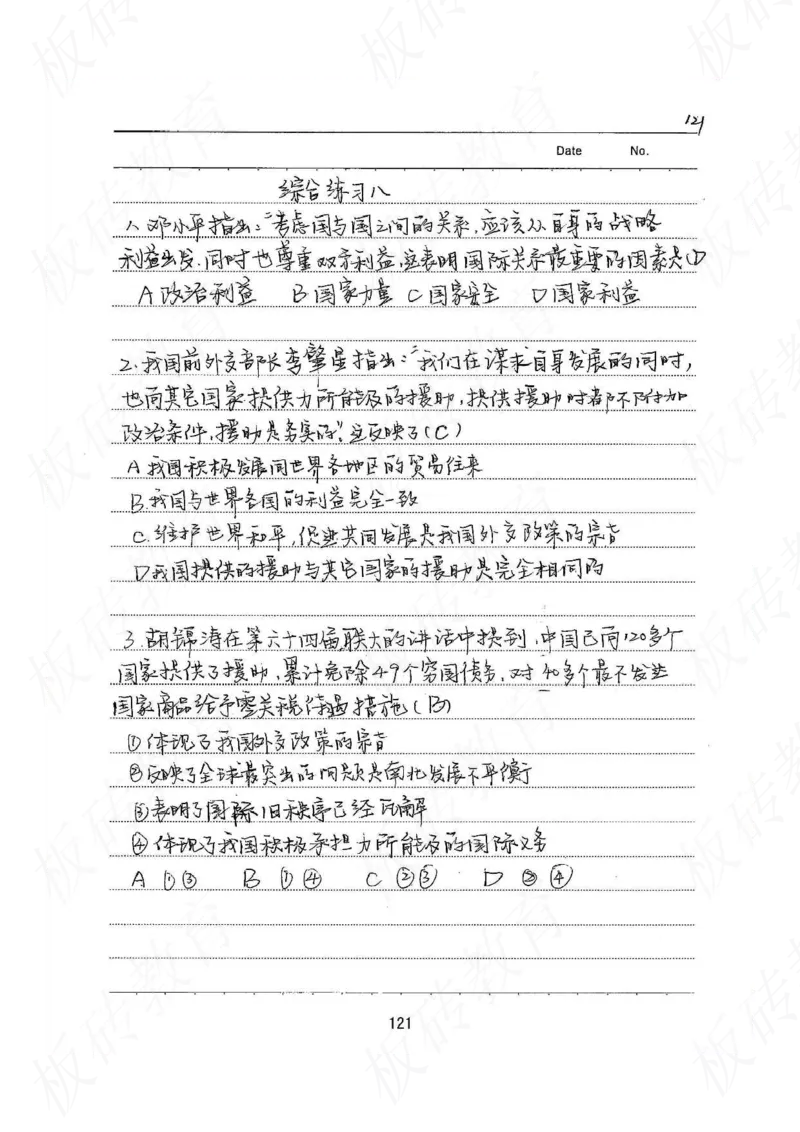 121
Date No.
综合练习八
1、邓小平指出:“考虑国与国之间的关系,应该从自身的战略
利益出发,同时也尊重双方利益,这表明国际关系最重要的因素是(D
A 政治利益 B 国家力量 C 国家安全 D 国家利益
2.我国前外交部长李肇星指出:“我们在谋求自身发展的同时,
也向其它国家提供力所能及的援助,提供援助时都不附加
政治条件,援助是务实的”,这反映了(C)
A 我国积极发展同世界各地区的贸易往来
B.我国与世界各国的利益完全一致
C.维护世界和平,促进共同发展是我国外交政策的宗旨
D 我国提供的援助与其它国家的援助是完全相同的
3.胡锦涛在第六十四届联大的讲话中提到,中国已向120多个
国家提供了援助,累计免除49个穷国债务,对40多个最不发达
国家商品给予零关税待遇措施(B)
①体现了我国外交政策的宗旨
②反映了全球最突出的问题是南北发展不平衡
③表明了国际旧秩序已经瓦解
④体现了我国积极承担力所能及的国际义务
A ①③ B ①④ C ②③ D ②④
121
板砖教育